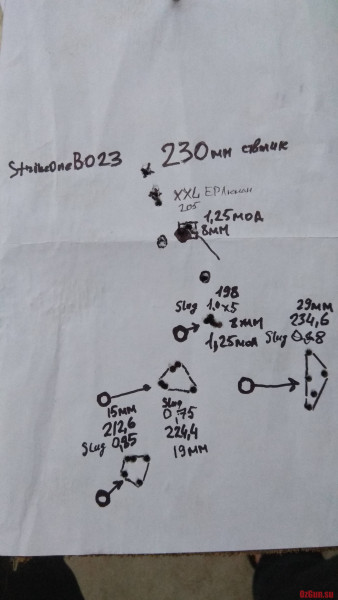 StrikeOneB023
230мм ствлик
XXL
205
1,25мод
8мм
198
Slug 1.0x5
8мм
1,25мод
29мм
234,6
Slug 0,88
15мм
212,6
Slug 0,85
Slug
0,75
224,4
19мм
OzGun.su